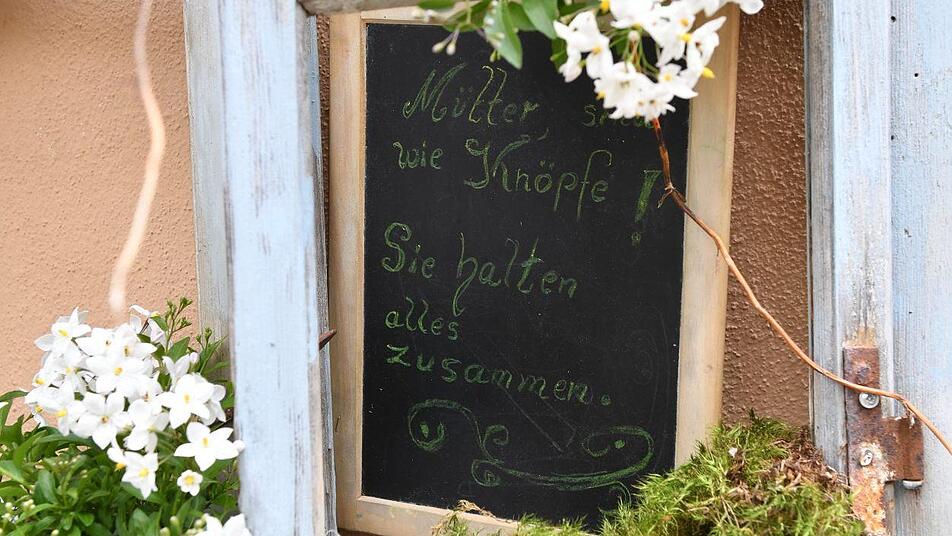 Mütter, sind
wie Knöpfe!
Sie halten
alles
zusammen.